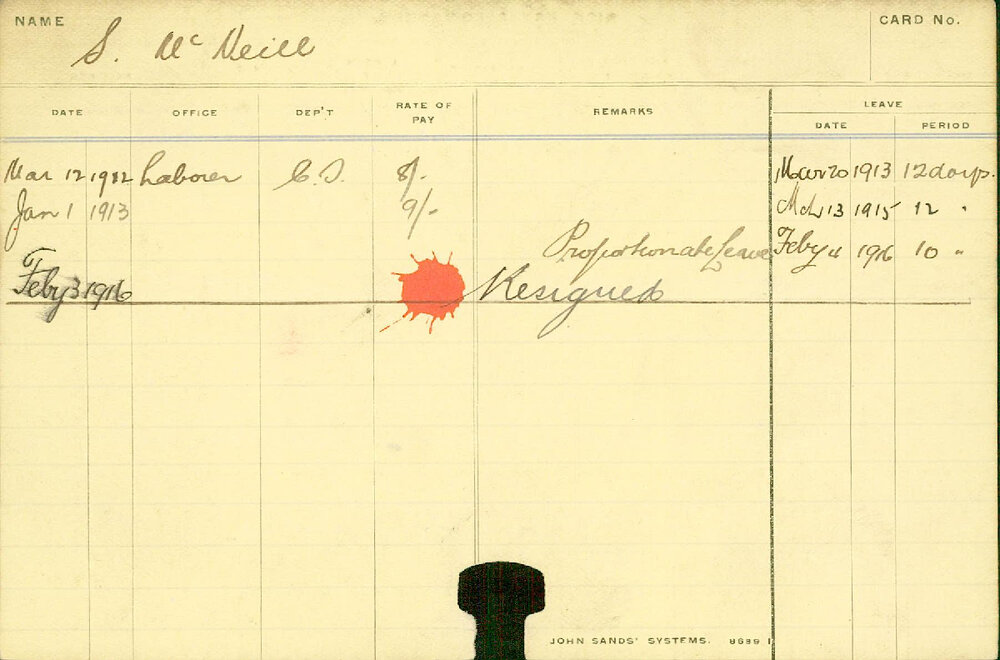 NAME S. McNeill CARD No.
DATE OFFICE DEP'T RATE OF PAY REMARKS LEAVE
DATE PERIOD
Mar 12 1912 Laborer C.S. 8/- Mar 20 1913 12 days.
Jan 1 1913 9/- Mch 13 1915 12 "
Proportionate Leave Feby 4 1916 10 "
Feby 3 1916 Resigned
JOHN SANDS' SYSTEMS.